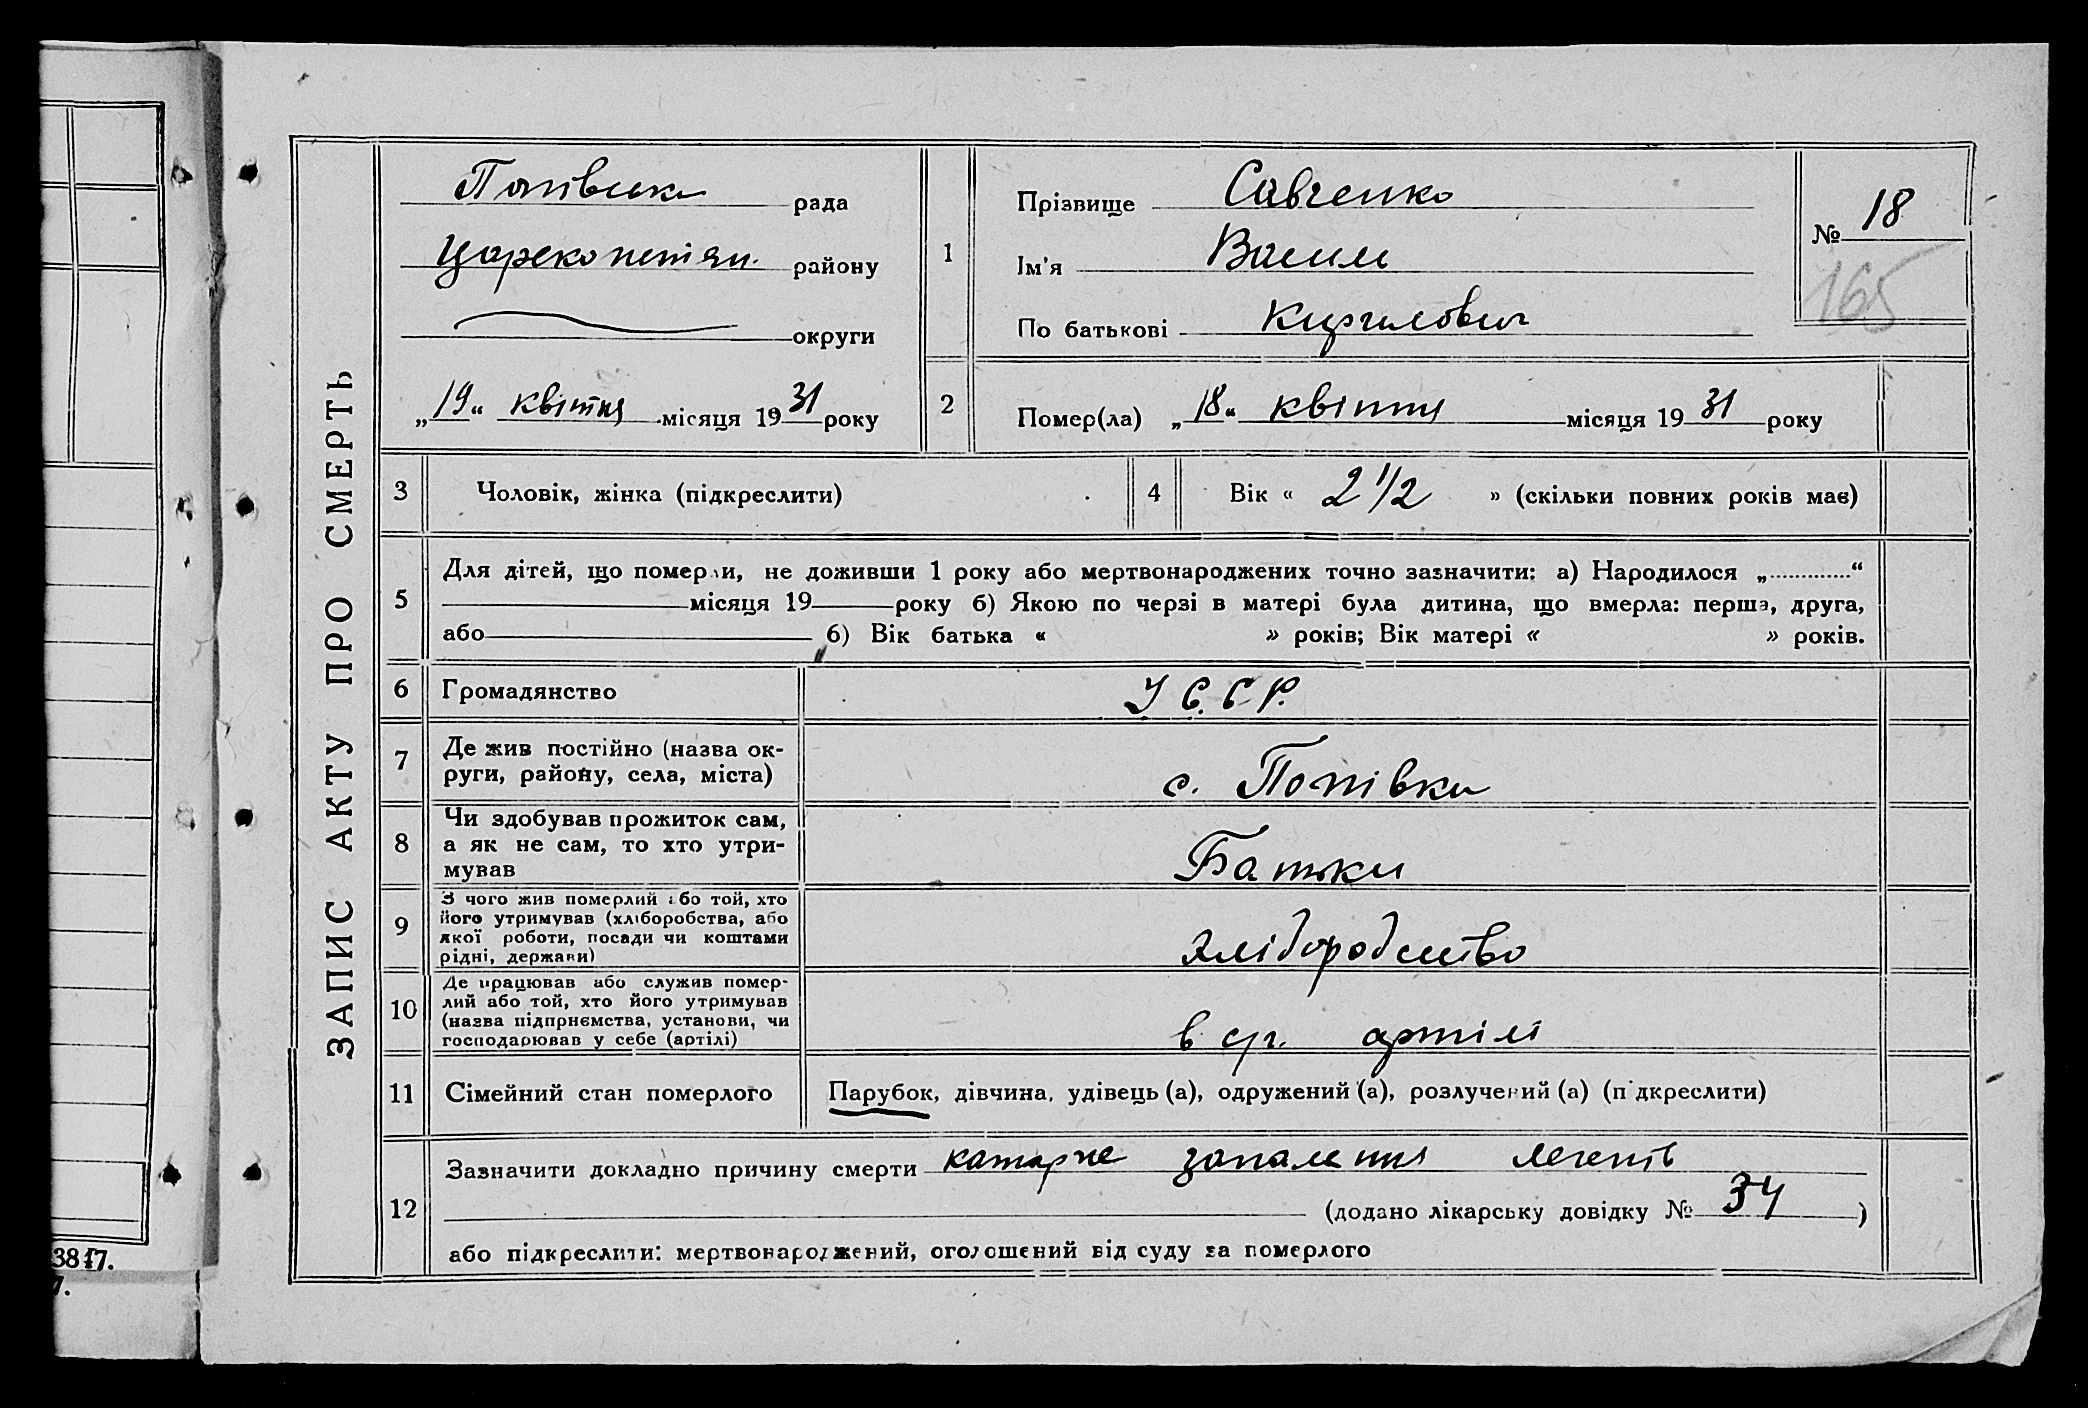 ЗАПИС АКТУ ПРО СМЕРТЬ
Попівська рада
Царекопетян. району
округи
„19“ квітня місяця 1931 року
1
Прізвище Савченко
Ім'я Василь
По батькові Кирилович
№ 18
165
2
Помер(ла) „18“ квітня місяця 1931 року
3 Чоловік, жінка (підкреслити)
4 Вік « 2 1/2 » (скільки повних років має)
5
Для дітей, що померли, не доживши 1 року або мертвонароджених точно зазначити: а) Народилося „.............“
місяця 19 року б) Якою по черзі в матері була дитина, що вмерла: перша, друга,
або б) Вік батька « » років; Вік матері « » років.
6 Громадянство У.С.С.Р.
7
Де жив постійно (назва ок-
руги, району, села, міста)
с. Попівка
8
Чи здобував прожиток сам,
а як не сам, то хто утри-
мував
Батьки
9
З чого жив померлий або той, хто
його утримував (хліборобства, або
якої роботи, посади чи коштами
рідні, держави)
хліборобство
10
Де працював або служив помер-
лий або той, хто його утримував
(назва підприємства, установи, чи
господарював у себе (артілі)
в с/г. артілі
11 Сімейний стан померлого Парубок, дівчина, удівець (а), одружений (а), розлучений (а) (підкреслити)
12
Зазначити докладно причину смерти катарне запалення легенів
(додано лікарську довідку № 34)
або підкреслити: мертвонароджений, оголошений від суду за померлого
3817.
7.